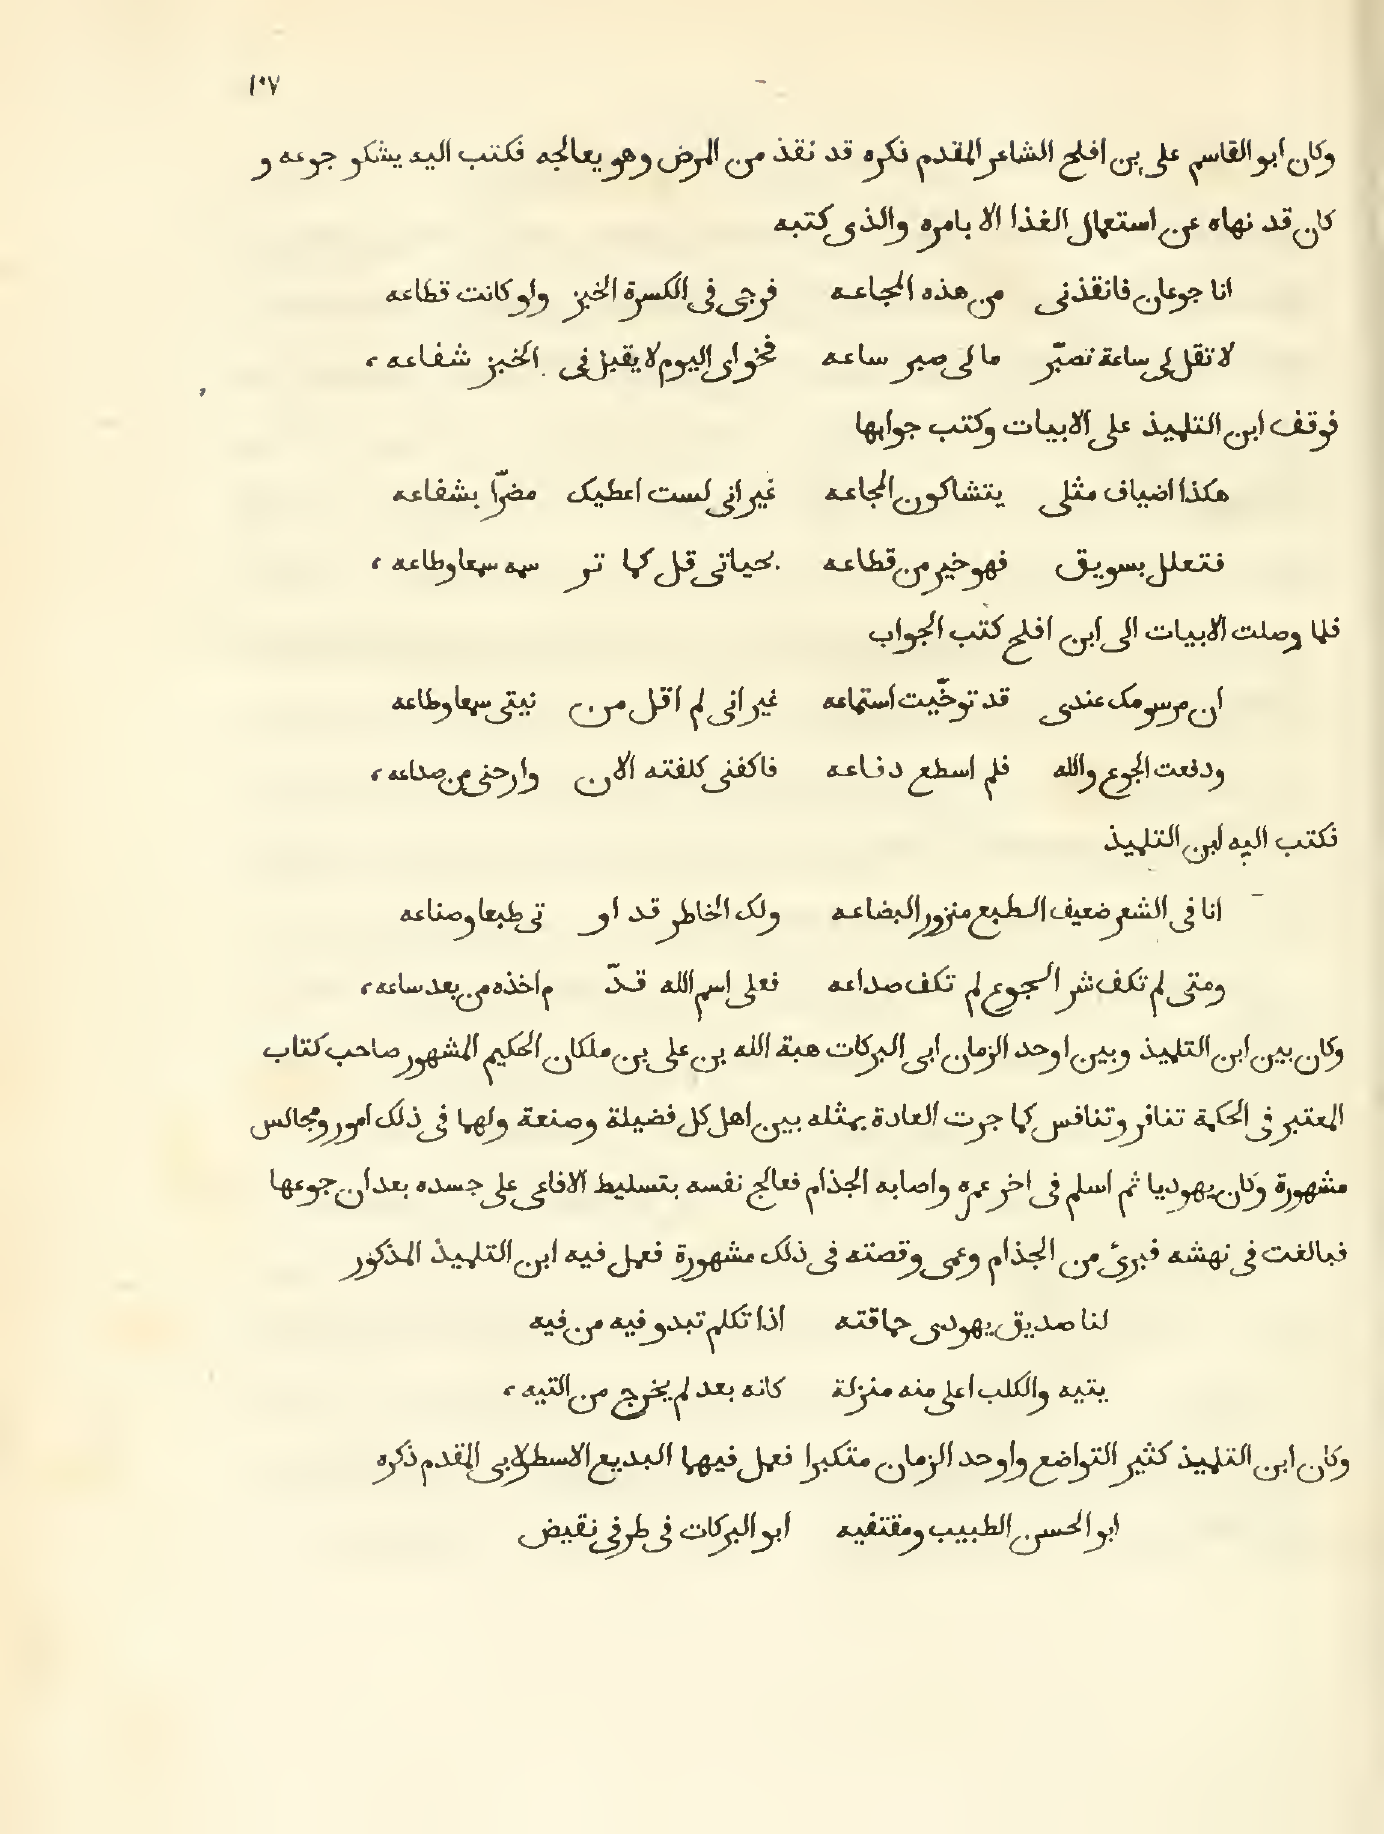 ١٠٧
وكان ابو القاسم على بن افلح الشاعر المقدم ذكره قد نقذ من المرض وهو يعالجه فكتب اليه يشكو جوعه و
كان قد نهاه عن استعمال الغذا الا بامره والذى كتبه
انا جوعان فانقذنى من هذه المجاعه فرجى فى الكسرة الخبز ولو كانت قطاعه
لا تقل لى ساعة تصبّر ما لى صبر ساعه فخواى اليوم لا يقبل فى الخبز شفاعه ،
فوقف ابن التلميذ على الابيات وكتب جوابها
هكذا اضياف مثلى يتشاكون المجاعه غير انى لست اعطيك مضرّا بشفاعه
فتعلل بسويق فهو خير من قطاعه بحياتى قل كما تو سمه سمعا وطاعه ،
فلما وصلت الابيات الى ابن افلح كتب الجواب
ان مرسومك عندى قد توخّيت استماعه غير انى لم اقل من نيتى سمعا وطاعه
ودفعت الجوع والله فلم اسطع دفاعه فاكفنى كلفته الان وارحنى من صداعه ،
فكتب اليه ابن التلميذ
انا فى الشعر ضعيف الطبع منزور البضاعه ولك الخاطر قد او تى طبعا وصناعه
ومتى لم تكف شر الجوع لم تكف صداعه فعلى اسم الله قدّ م اخذه من بعد ساعه ،
وكان بين ابن التلميذ وبين اوحد الزمان ابى البركات هبة الله بن على بن ملكان الحكيم المشهور صاحب كتاب
المعتبر فى الحكمة تنافر وتنافس كما جرت العادة بمثله بين اهل كل فضيلة وصنعة ولهما فى ذلك امور ومجالس
مشهورة وكان يهوديا ثم اسلم فى اخر عمره واصابه الجذام فعالج نفسه بتسليط الافاعى على جسده بعد ان جوعها
فبالغت فى نهشه فبرئ من الجذام وعمى وقصته فى ذلك مشهورة فعمل فيه ابن التلميذ المذكور
لنا صديق يهودى حماقته اذا تكلم تبدو فيه من فيه
يتيه والكلب اعلى منه منزلة كانه بعد لم يخرج من التيه ،
وكان ابن التلميذ كثير التواضع واوحد الزمان متكبرا فعمل فيهما البديع الاسطرلابى المقدم ذكره
ابو الحسن الطبيب ومقتفيه ابو البركات فى طرفى نقيض